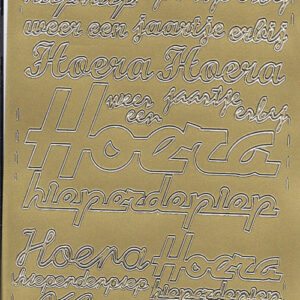 hieperdepiep
weer een jaartje erbij
Hoera Hoera
weer een jaartje erbij
Hoera
hieperdepiep
Hoera Hoera
hieperdepiep hieperdepiep